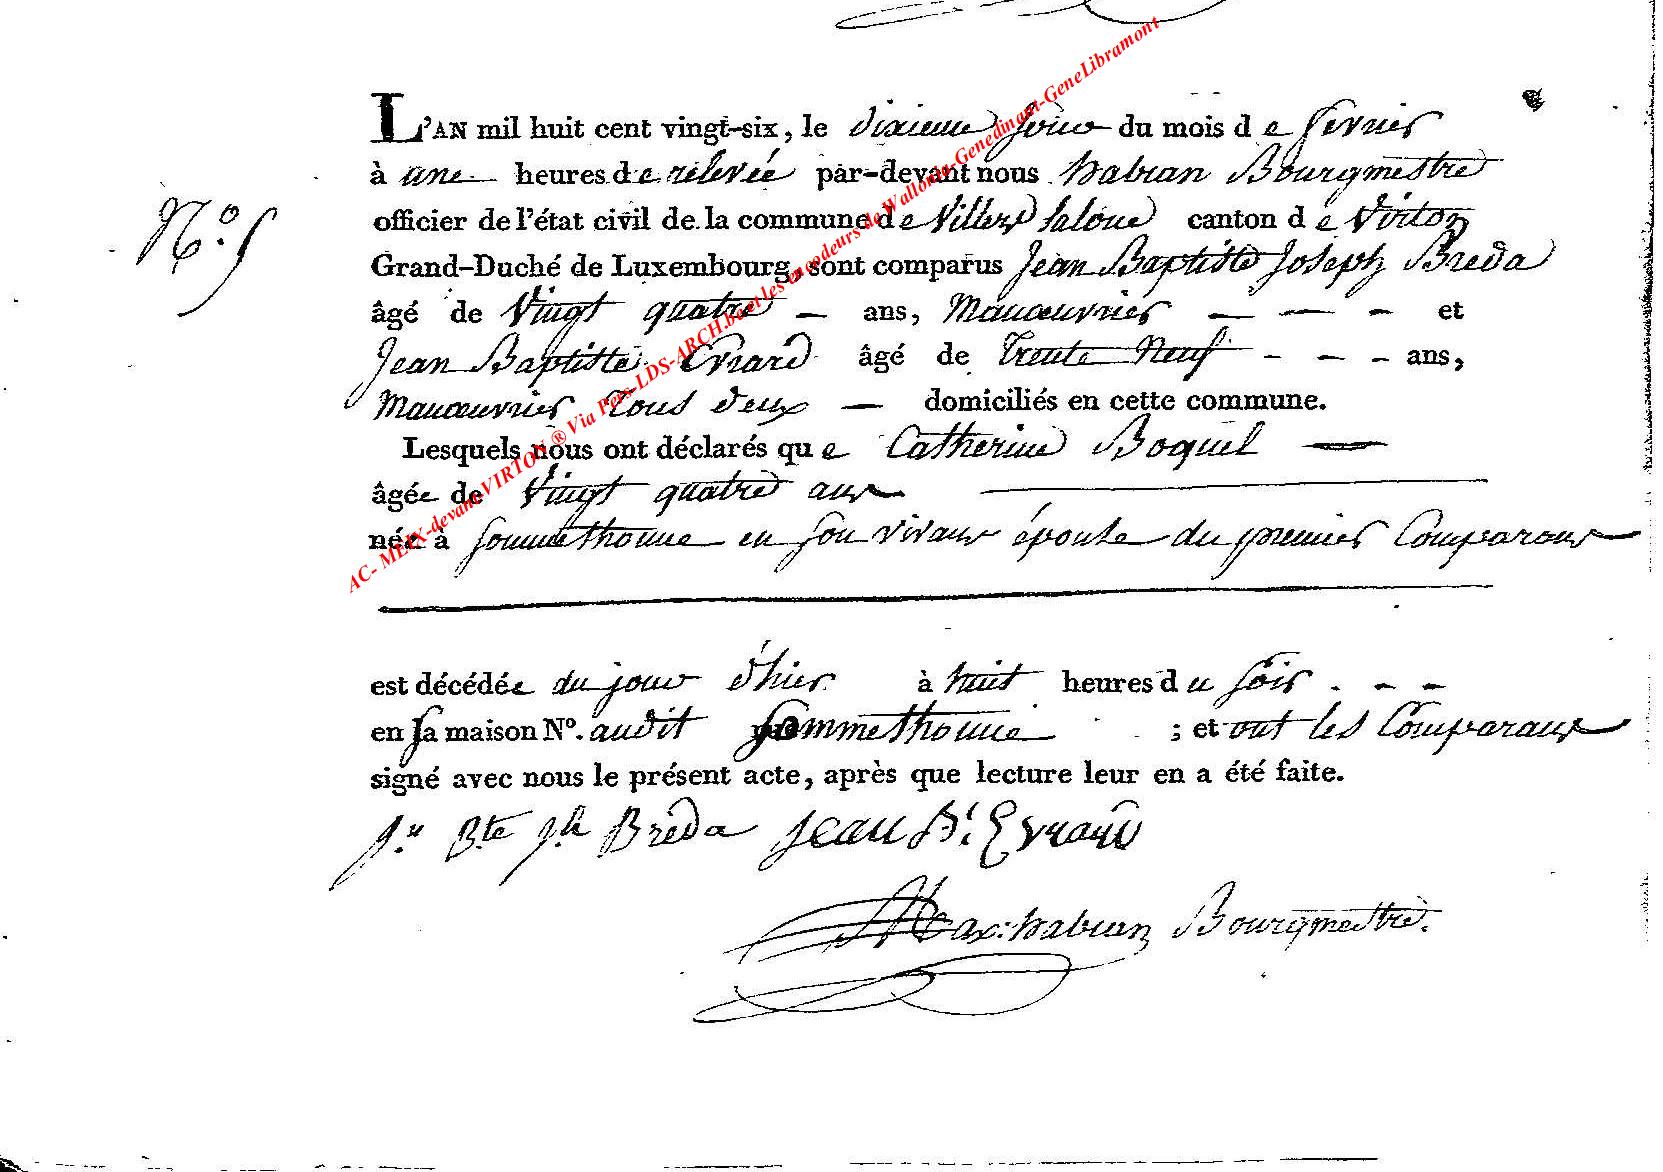 L'AN mil huit cent vingt-six, le dixieme jour du mois de fevrier
N.º 5
à une heures de relevée par-devant nous habran Bourgmestre
officier de l'état civil de la commune de Villers laloue canton de Virton
Grand-Duché de Luxembourg, sont comparus Jean Baptiste Joseph Breda
âgé de Vingt quatre – ans, Manœuvrier – – – et
Jean Baptiste Evrard âgé de Trente Neuf - - - ans,
Manœuvrier Tous deux — domiciliés en cette commune.
Lesquels nous ont déclarés que Catherine Boquel —
âgée de Vingt quatre ans
née à Sommethonne en son vivant épouse du premier Comparant
est décédée du jour d'hier à huit heures du soir . - -
en sa maison Nº. audit Sommethonne ; et ont les Comparants
signé avec nous le présent acte, après que lecture leur en a été faite.
Jn Bte Jh Breda Jean Bt Evrard
Max: habran Bourgmestre.
AC- MEIX-devant-VIRTON ® Via Pers-LDS-ARCH.be et les encodeurs de Wallonia-Genedinant-GeneLibramont